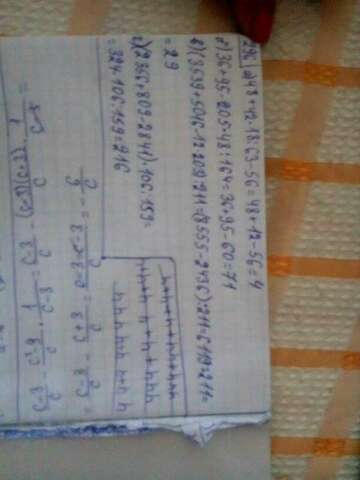 296. а) 48+42·18:63-56=48+12-56=4
г) 36+95-205·48:164=36+95-60=71
б) (3509+5046-12·203):211=(8555-2436):211=6119:211=
=29
в) (2356+809-2841)·106:159=
=324·106:159=216
c-3/c - c²-9/c · 1/c-3 = c-3/c - (c-3)(c+3)/c · 1/c-3 =
= c-3/c - c+3/c = c-3-c-3/c = -6/c